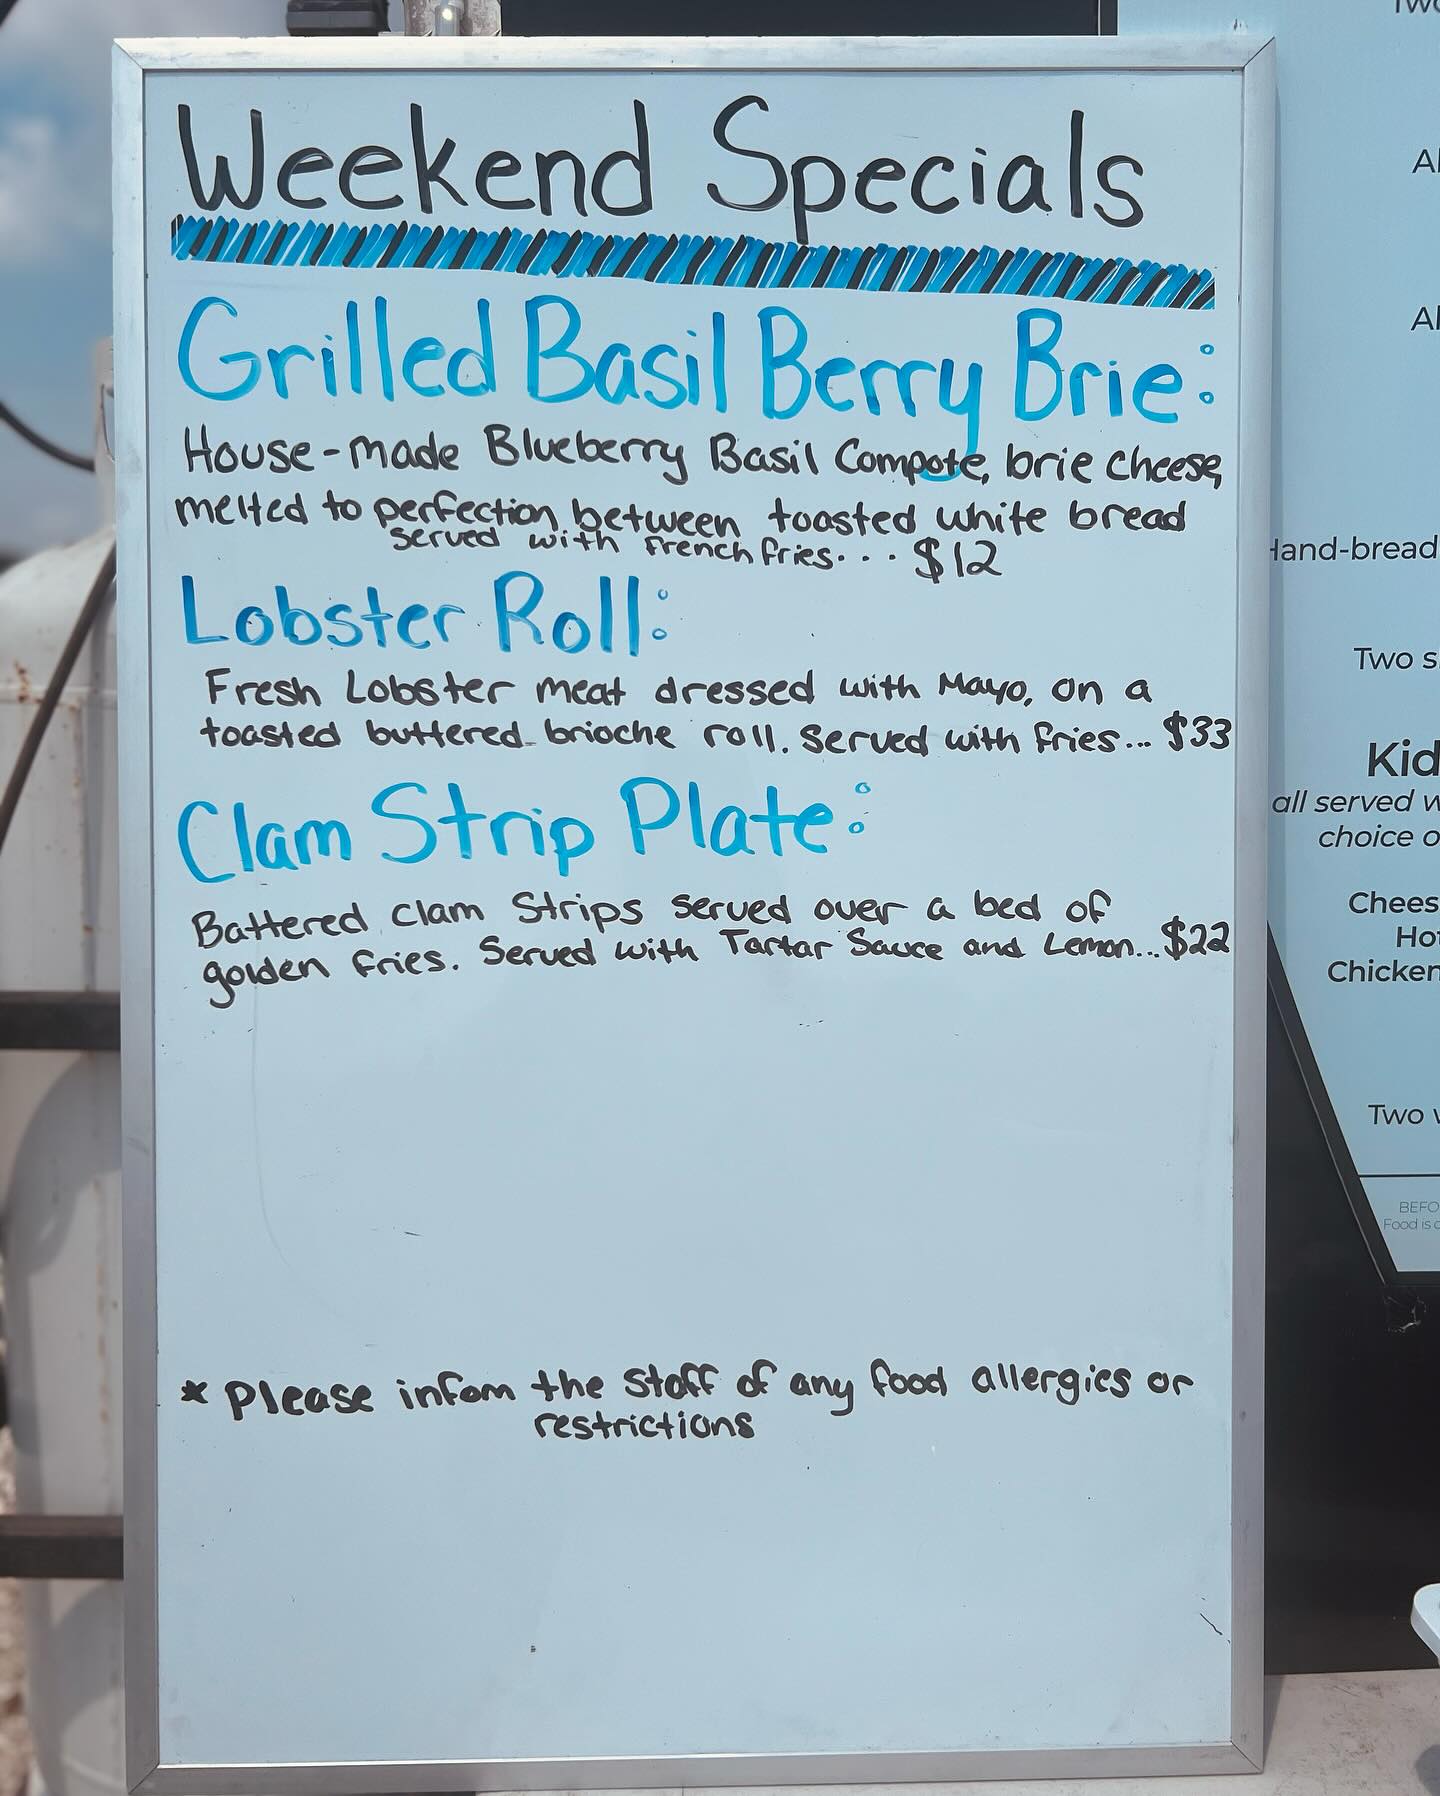 Weekend Specials
Grilled Basil Berry Brie:
House-made Blueberry Basil Compote, brie cheese,
melted to perfection between toasted white bread
served with french fries... $12
Lobster Roll:
Fresh Lobster meat dressed with Mayo, on a
toasted buttered brioche roll. Served with fries... $33
Clam Strip Plate:
Battered clam Strips served over a bed of
golden fries. Served with Tartar Sauce and Lemon... $22
* Please infom the staff of any food allergies or
restrictions
Two
Hand-bread
Two s
Kid
all served w
choice o
Chees
Hot
Chicken
Two w
BEFO
Food is c